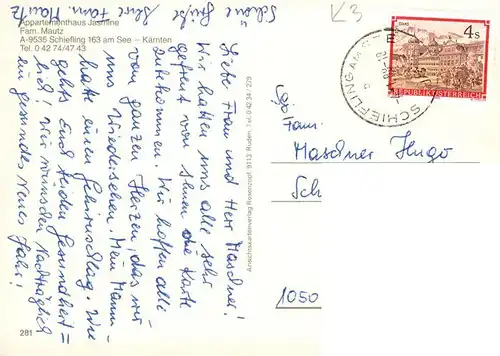 Appartementhaus Jasmine
Fam. Mautz
A-9535 Schiefling 163 am See – Kärnten
Tel. 0 42 74/47 43
Liebe Frau und Herr Maschner!
Wir hatten uns alle sehr
gefreut von Ihnen die Karte
zu bekommen. Wir hoffen alle
vom ganzen Herzen, das wir
uns Wiedersehen. Mein Mann
hatte einen Gehirnschlag. Wie
geht's Euch beiden Gesundheit=
lich! Wir wünschen Nachträglich
ein gesundes Neues Jahr!
Schöne Grüße
Ihre Fam. Mautz
281
Ansichtskartenverlag Rosenzopf, 9113 Ruden, Tel. 0 42 34/279
K3
4 s
REPUBLIK ÖSTERREICH
SCHIEFLING AM SEE
Fam.
Maschner Hugo
Sch
1050